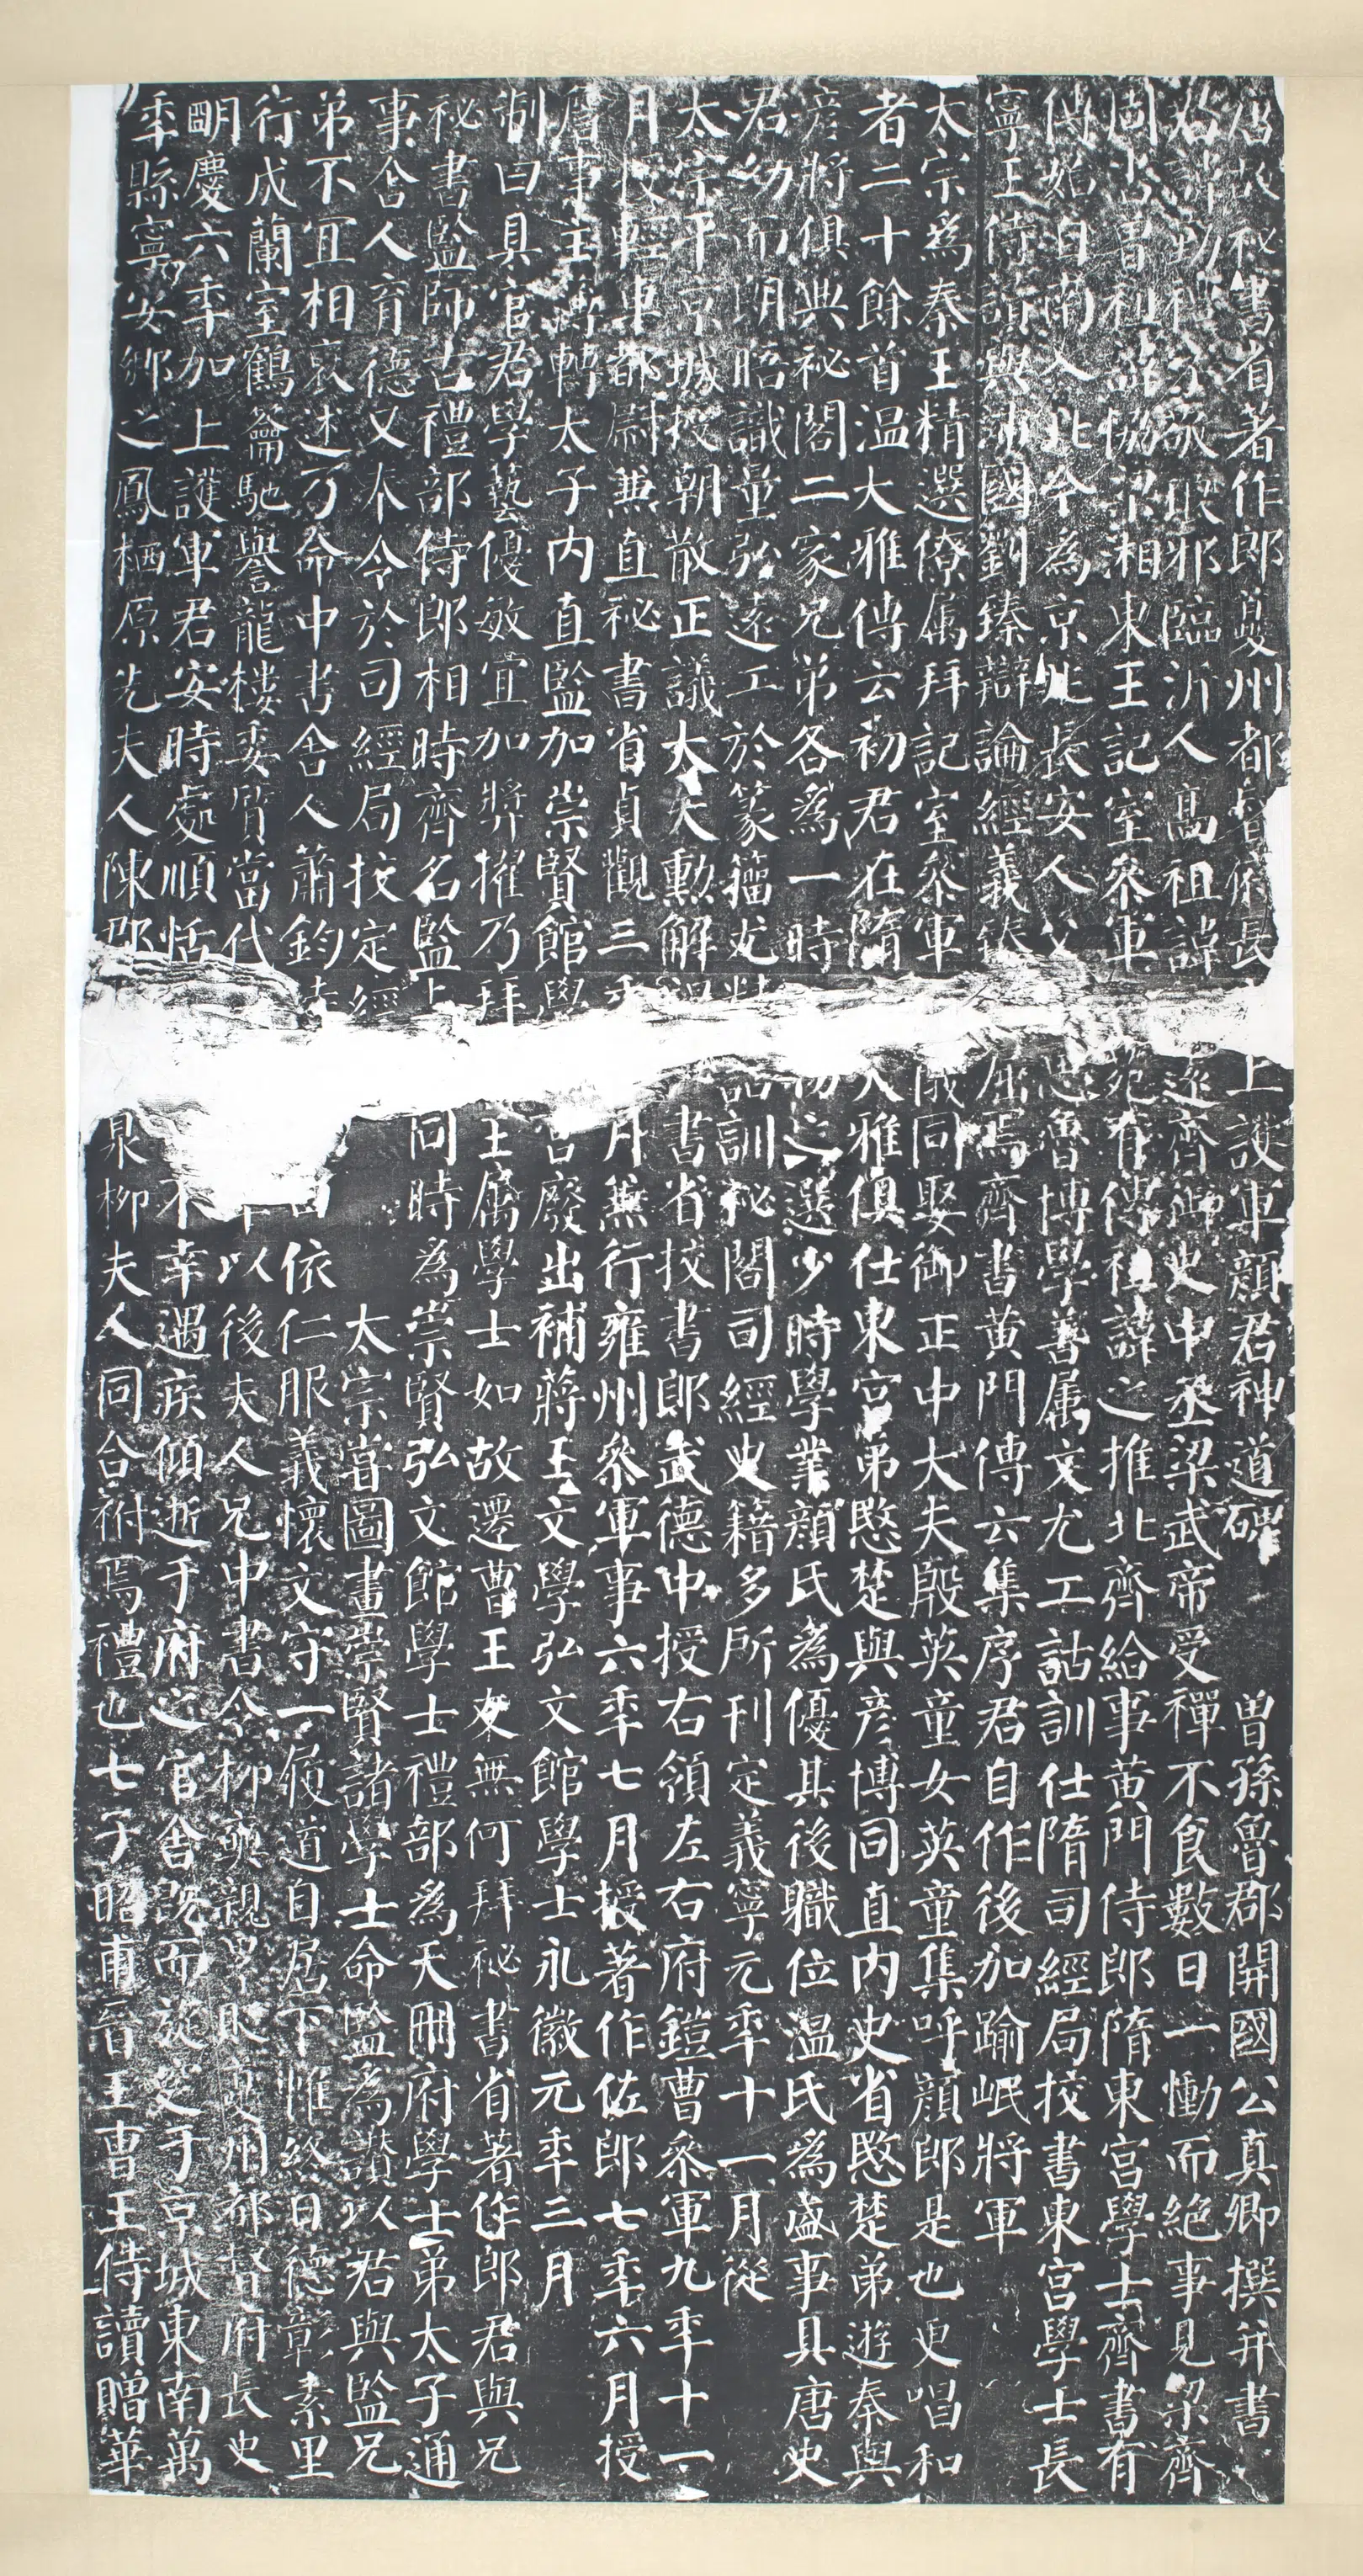 唐故秘書省著作郎夔州都督府長上護軍顏君神道碑 曾孫魯郡開國公真卿撰并書
君諱勤禮字敬琅邪臨沂人高祖諱見遠齊御史中丞梁武帝受禪不食數日一慟而絕事見梁齊
周書曾祖諱協梁湘東王記室參軍文苑有傳祖諱之推北齊給事黃門侍郎隋東宮學士齊書有
傳始自南入北今為京兆長安人父思魯博學善屬文尤工詁訓仕隋司經局校書東宮學士長
寧王侍讀與沛國劉臻辯論經義臻屈焉齊書黃門傳云集序君自作後加踰岷將軍
太宗為秦王精選僚屬拜記室參軍儀同娶御正中大夫殷英童女英童集呼顏郎是也更唱和
者二十餘首溫大雅傳云初君在隋大雅俱仕東宮弟愍楚與彥博同直內史省愍楚弟遊秦與
彥將俱典秘閣二家兄弟各為一時之選少時學業顏氏為優其後職位溫氏為盛事具唐史
君幼而朗晤識量弘遠工於篆籀尤精詁訓秘閣司經史籍多所刊定義寧元年十一月從
太宗平京城授朝散正議大夫勳解褐書省校書郎武德中授右領左右府鎧曹參軍九年十一
月授輕車都尉兼直秘書省貞觀三年月兼行雍州參軍事六年七月授著作佐郎七年六月授
詹事主簿轉太子內直監加崇賢館學宮廢出補蔣王文學弘文館學士永徽元年三月
制曰具官君學藝優敏宜加獎擢乃拜王屬學士如故遷曹王友無何拜秘書省著作郎君與兄
秘書監師古禮部侍郎相時齊名監與同時為崇賢弘文館學士禮部為天冊府學士弟太子通
事舍人育德又奉令於司經局校定經 太宗嘗圖畫崇賢諸學士命監為讚以君與監兄
弟不宜相褒述乃命中書舍人蕭鈞 依仁服義懷文守一履道自居下帷終日德彰素里
行成蘭室鶴籥馳譽龍樓委質當代 以後夫人兄中書令柳奭親累貶夔州都督府長史
明慶六年加上護軍君安時處順恬 不幸遇疾傾逝于府之官舍既而旋窆于京城東南萬
年縣寧安鄉之鳳栖原先夫人陳郡 泉柳夫人同合祔焉禮也七子昭甫晉王曹王侍讀贈華